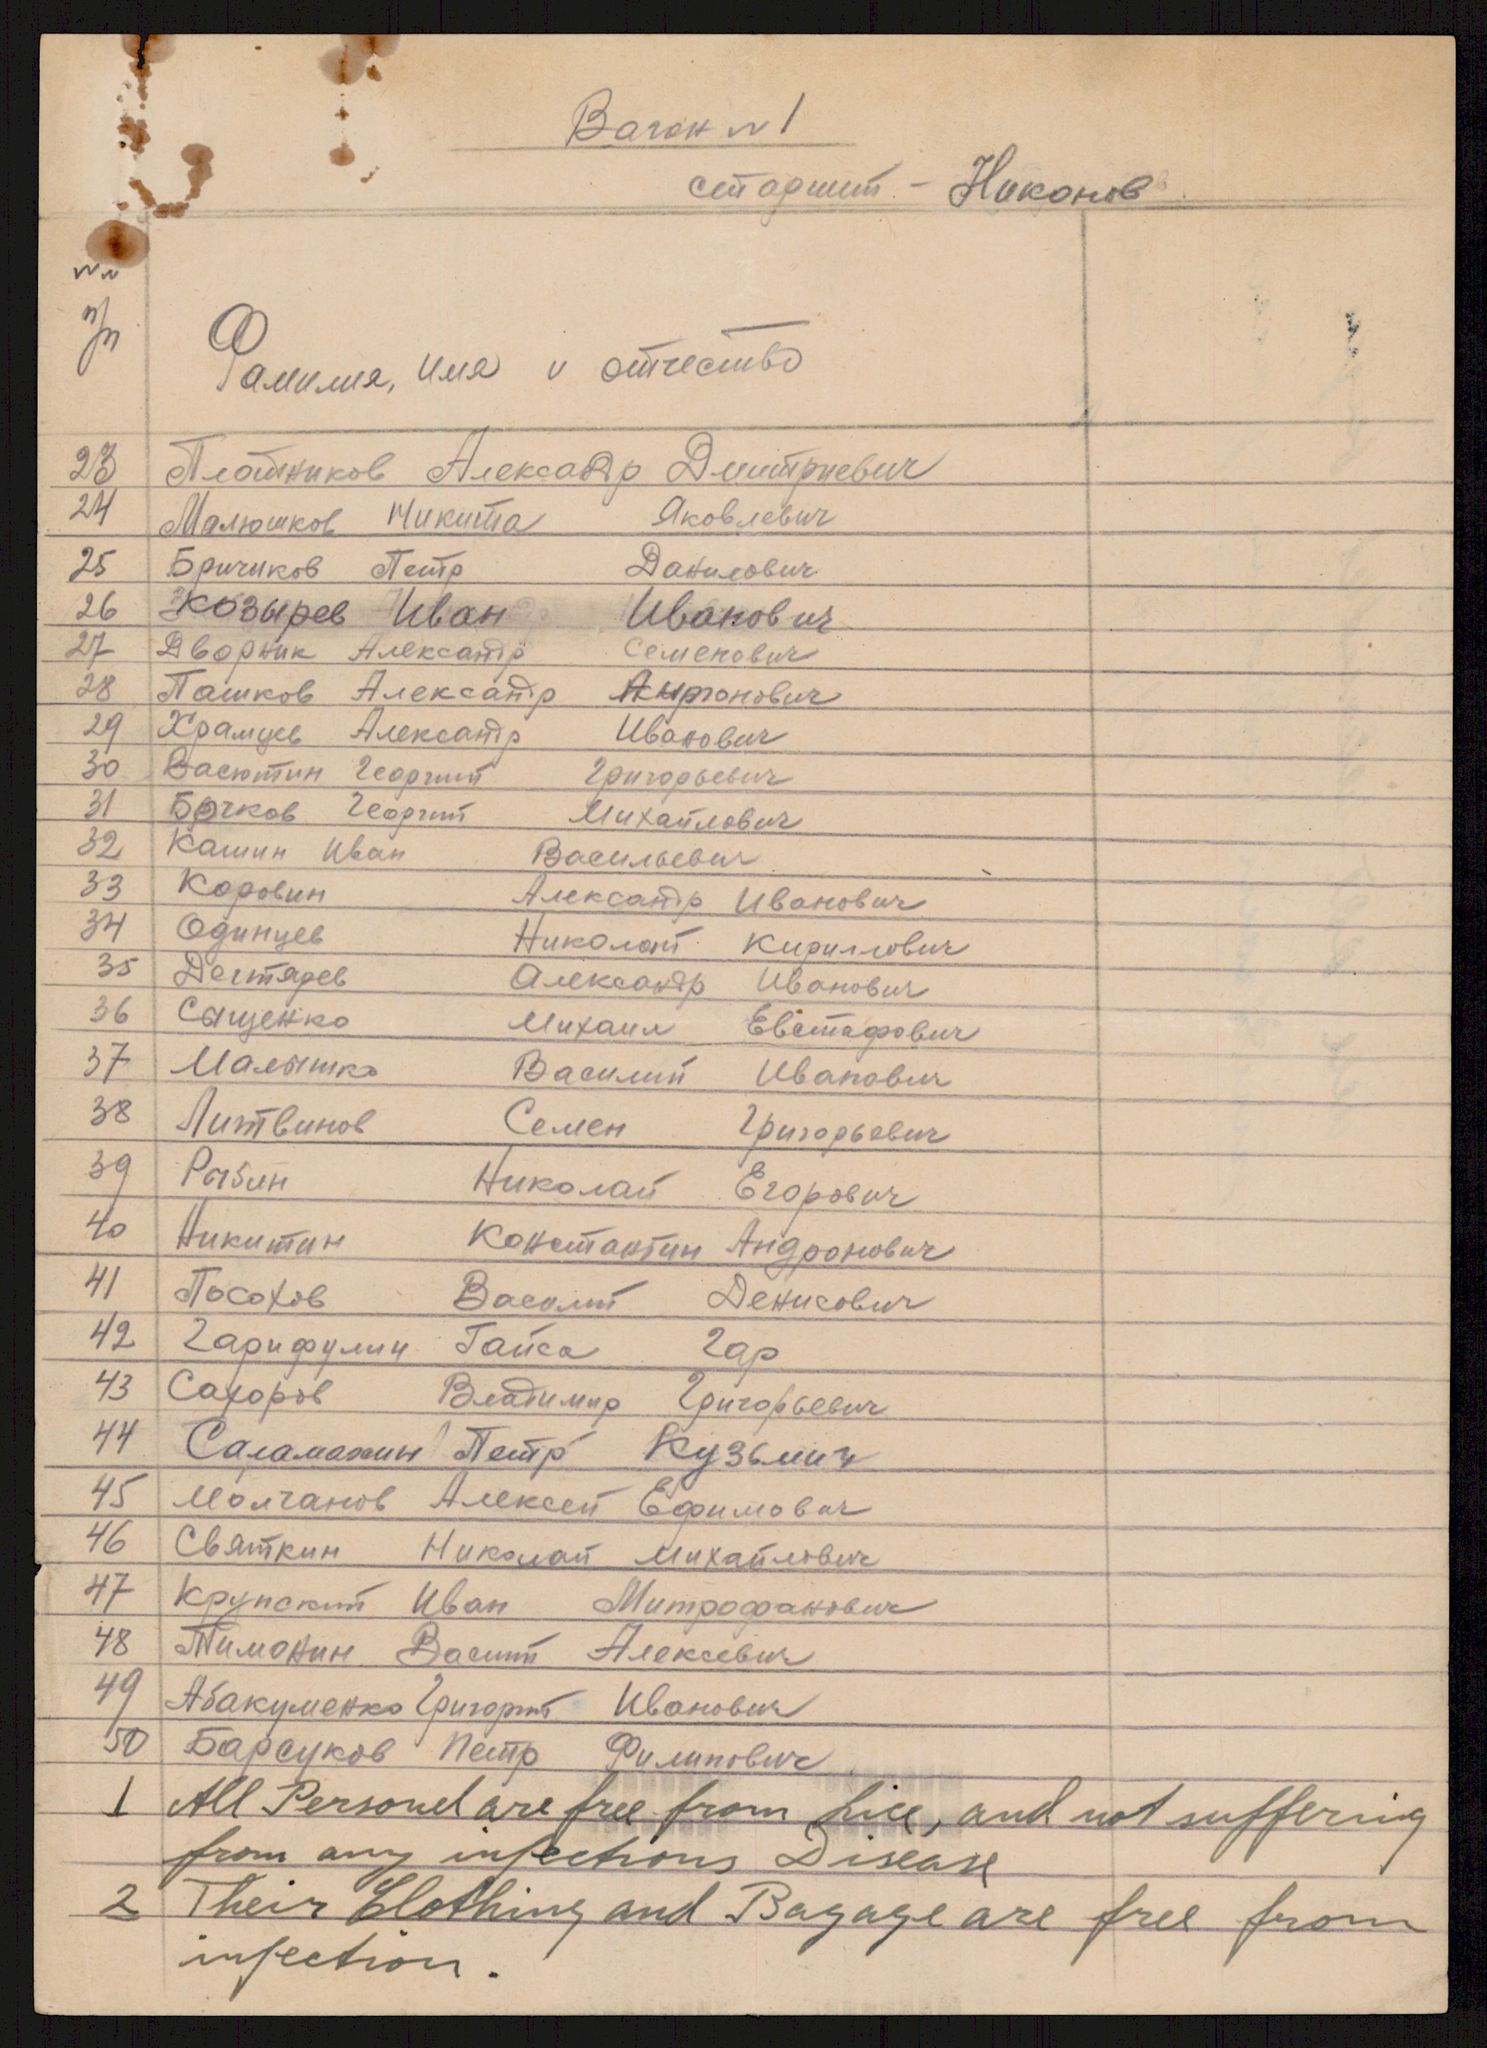 Вагон № 1
старший - Никонов
№№
п/п
Фамилия, имя и отчество
23 Плотников Александр Дмитриевич
24 Малюшков Никита Яковлевич
25 Бричиков Петр Данилович
26 Козырев Иван Иванович
27 Дворник Александр Семенович
28 Пашков Александр Антонович
29 Храмцев Александр Иванович
30 Васютин Георгий Григорьевич
31 Бычков Георгий Михайлович
32 Кашин Иван Васильевич
33 Коровин Александр Иванович
34 Одинцев Николай Кириллович
35 Дегтярев Александр Иванович
36 Сыщенко Михаил Евстафович
37 Малышко Василий Иванович
38 Литвинов Семен Григорьевич
39 Рыбин Николай Егорович
40 Никитин Константин Андронович
41 Посохов Василий Денисович
42 Гарифулин Гайса Гар
43 Сахоров Владимир Григорьевич
44 Саламахин Петр Кузьмич
45 Молчанов Алексей Ефимович
46 Святкин Николай Михайлович
47 Крупский Иван Митрофанович
48 Тимонин Васий Алексевич
49 Абакуменко Григорий Иванович
50 Барсуков Петр Филипович
1 All Personel are free from Lice, and not suffering
from any infections Disease
2 Their Clothing and Bagage are free from
infection.